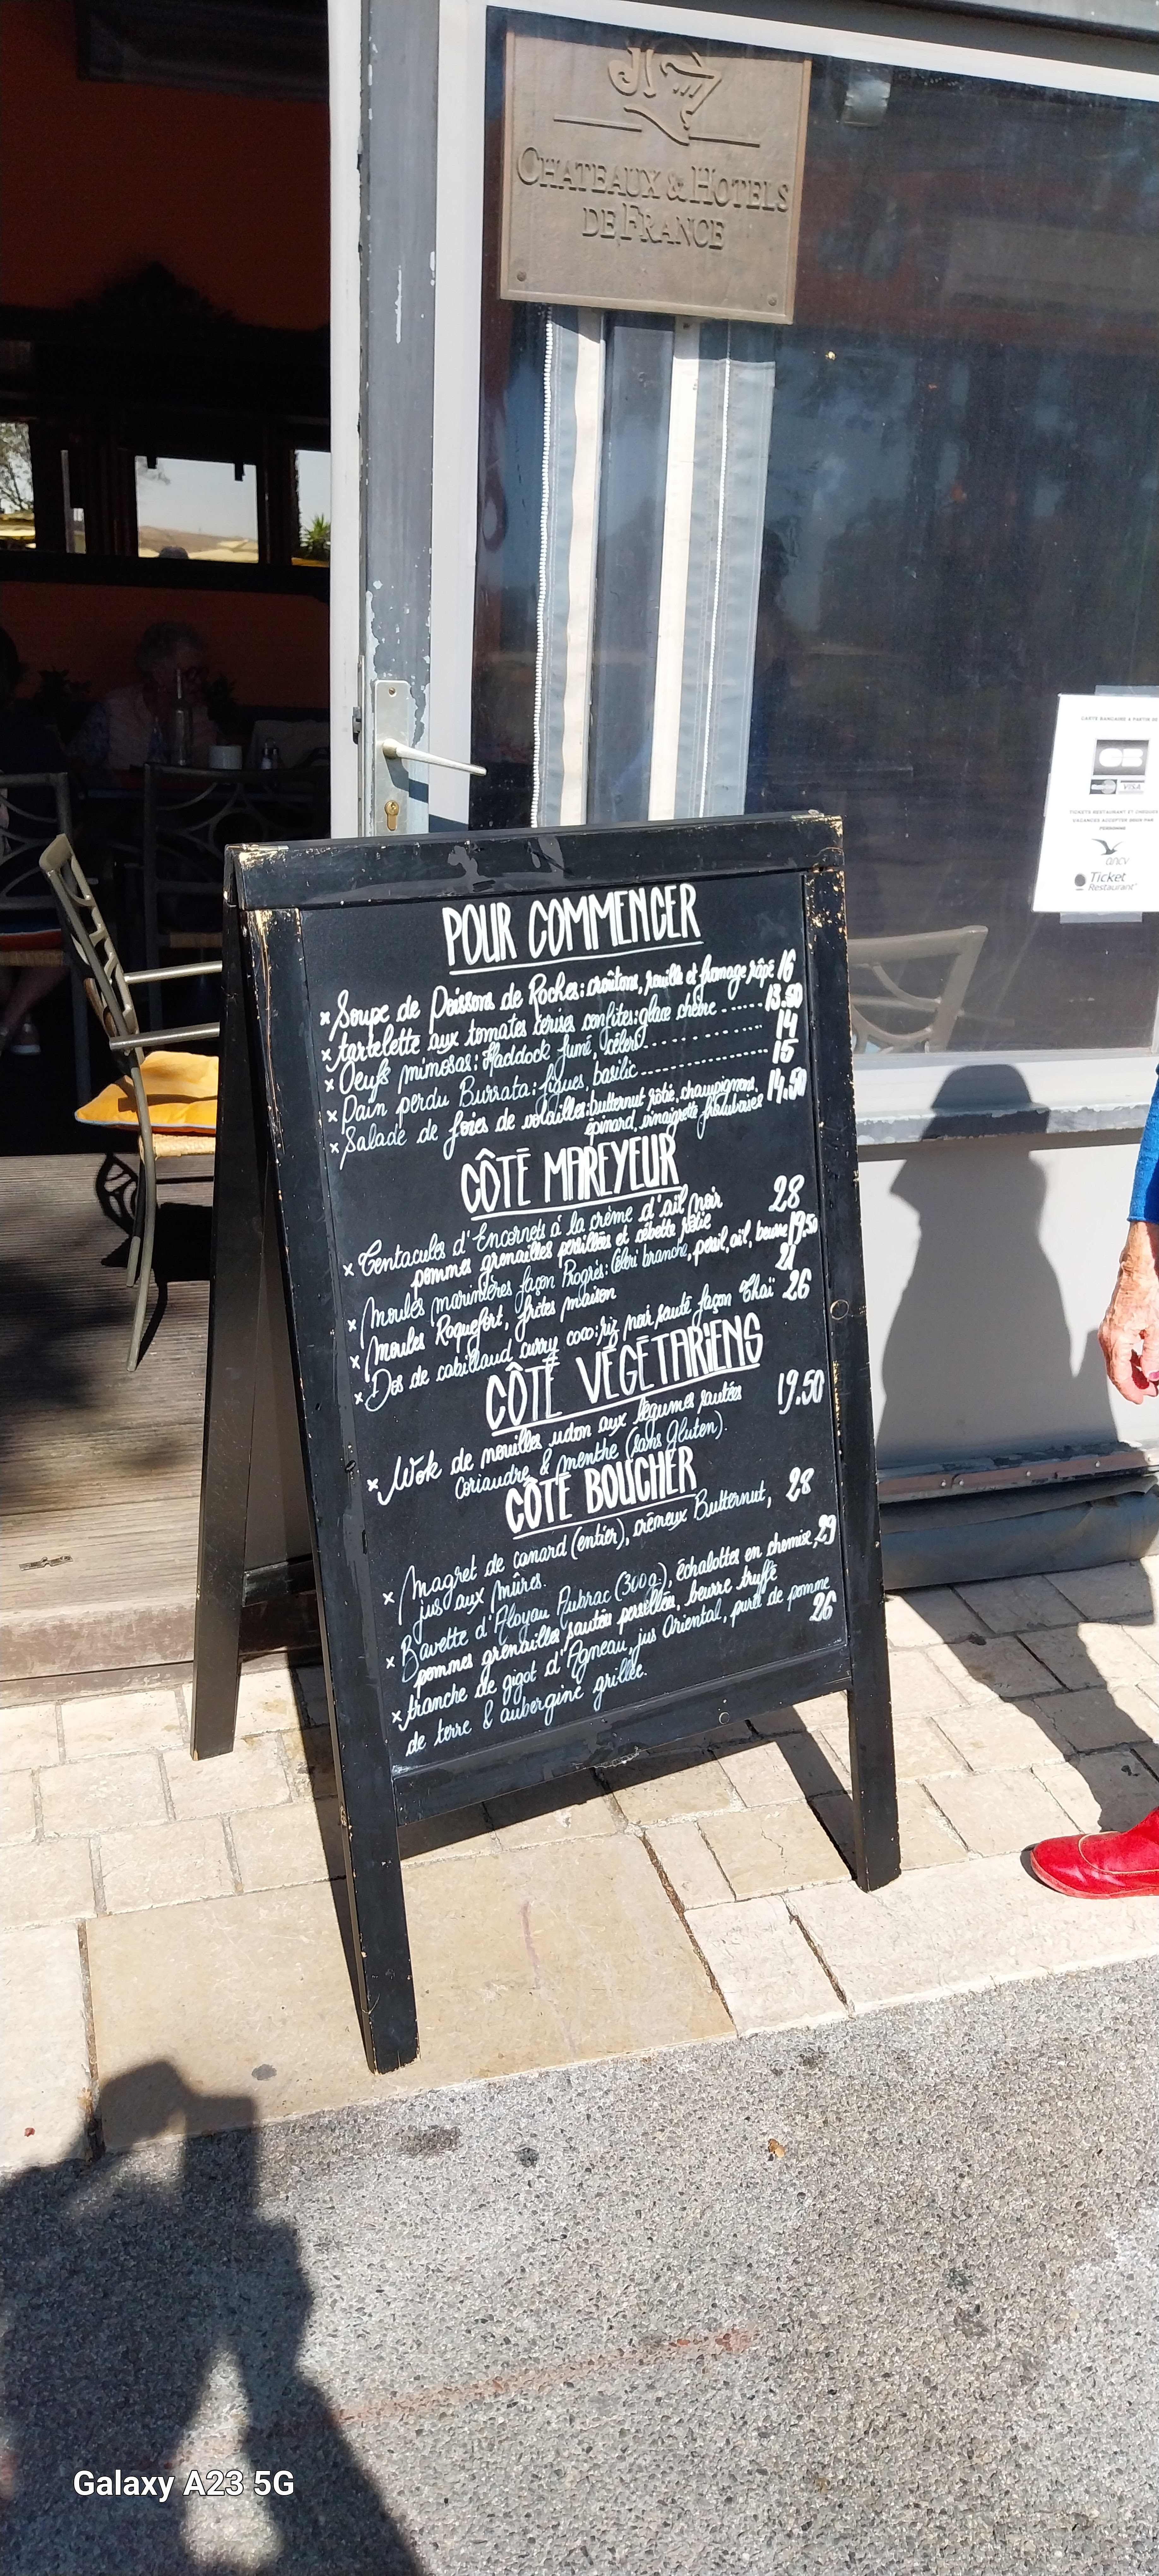 CHATEAUX & HOTELS
DE FRANCE
CARTE BANCAIRE A PARTIR DE
CB
VISA
TICKETS RESTAURANT ET CHEQUES
VACANCES ACCEPTER PAR
PERSONNE
ancv
Ticket
Restaurant
POUR COMMENCER
x Soupe de Poissons de Roches: croûtons, rouille et fromage râpé 16
x tartelette aux tomates cerises confites: glace chèvre ------- 13.50
x Oeufs mimosas: Haddock fumé, céleri ---------- 14
x Pain perdu Burrata: figues, basilic ------------ 15
x Salade de foies de volailles: butternut rôtie, champignons, 14.50
épinard, vinaigrette framboises
CÔTÉ MAREYEUR
x Tentacules d'Encornets à la crème d'ail noir 28
pommes grenailles persillées et cébette rôtie
x Moules marinières façon Progrès: Céleri branche, persil, ail, beurre 19.50
x Moules Roquefort, frites maison 21
x Dos de cabillaud curry coco: riz noir sauté façon Thaï 26
CÔTÉ VÉGÉTARIENS
x Wok de nouilles udon aux légumes sautées 19.50
coriandre & menthe (sans Gluten).
CÔTÉ BOUCHER
x Magret de canard (entier), crémeux Butternut, 28
jus aux mûres.
x Bavette d'Aloyau Aubrac (300g), échalottes en chemise, 29
pommes grenailles sautées persillées, beurre truffé
x tranche de gigot d'Agneau, jus Oriental, purée de pomme 26
de terre & aubergine grillée.
Galaxy A23 5G